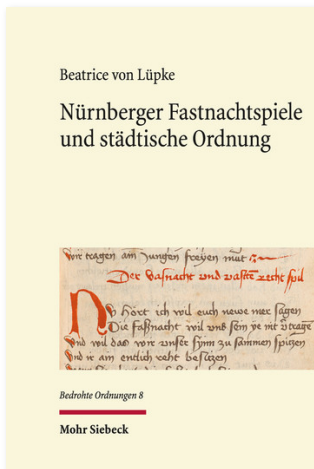 Beatrice von Lüpke
Nürnberger Fastnachtspiele
und städtische Ordnung
wir tragen am Jungen freyen mut
Der vasnacht vnd vasten recht spil
Nv hort ich wil euch newe mer sagen
Die fasnacht wil vnd sein ye nit
vnd wil das vor vnser hinn zu sammen spitzen
vnd ir am entlich recht besitzen
Bedrohte Ordnungen 8
Mohr Siebeck